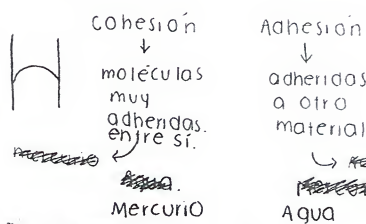 cohesión
moléculas
muy
adheridas
entre sí.
Mercurio
Adhesión
adheridas
a otro
material
Agua